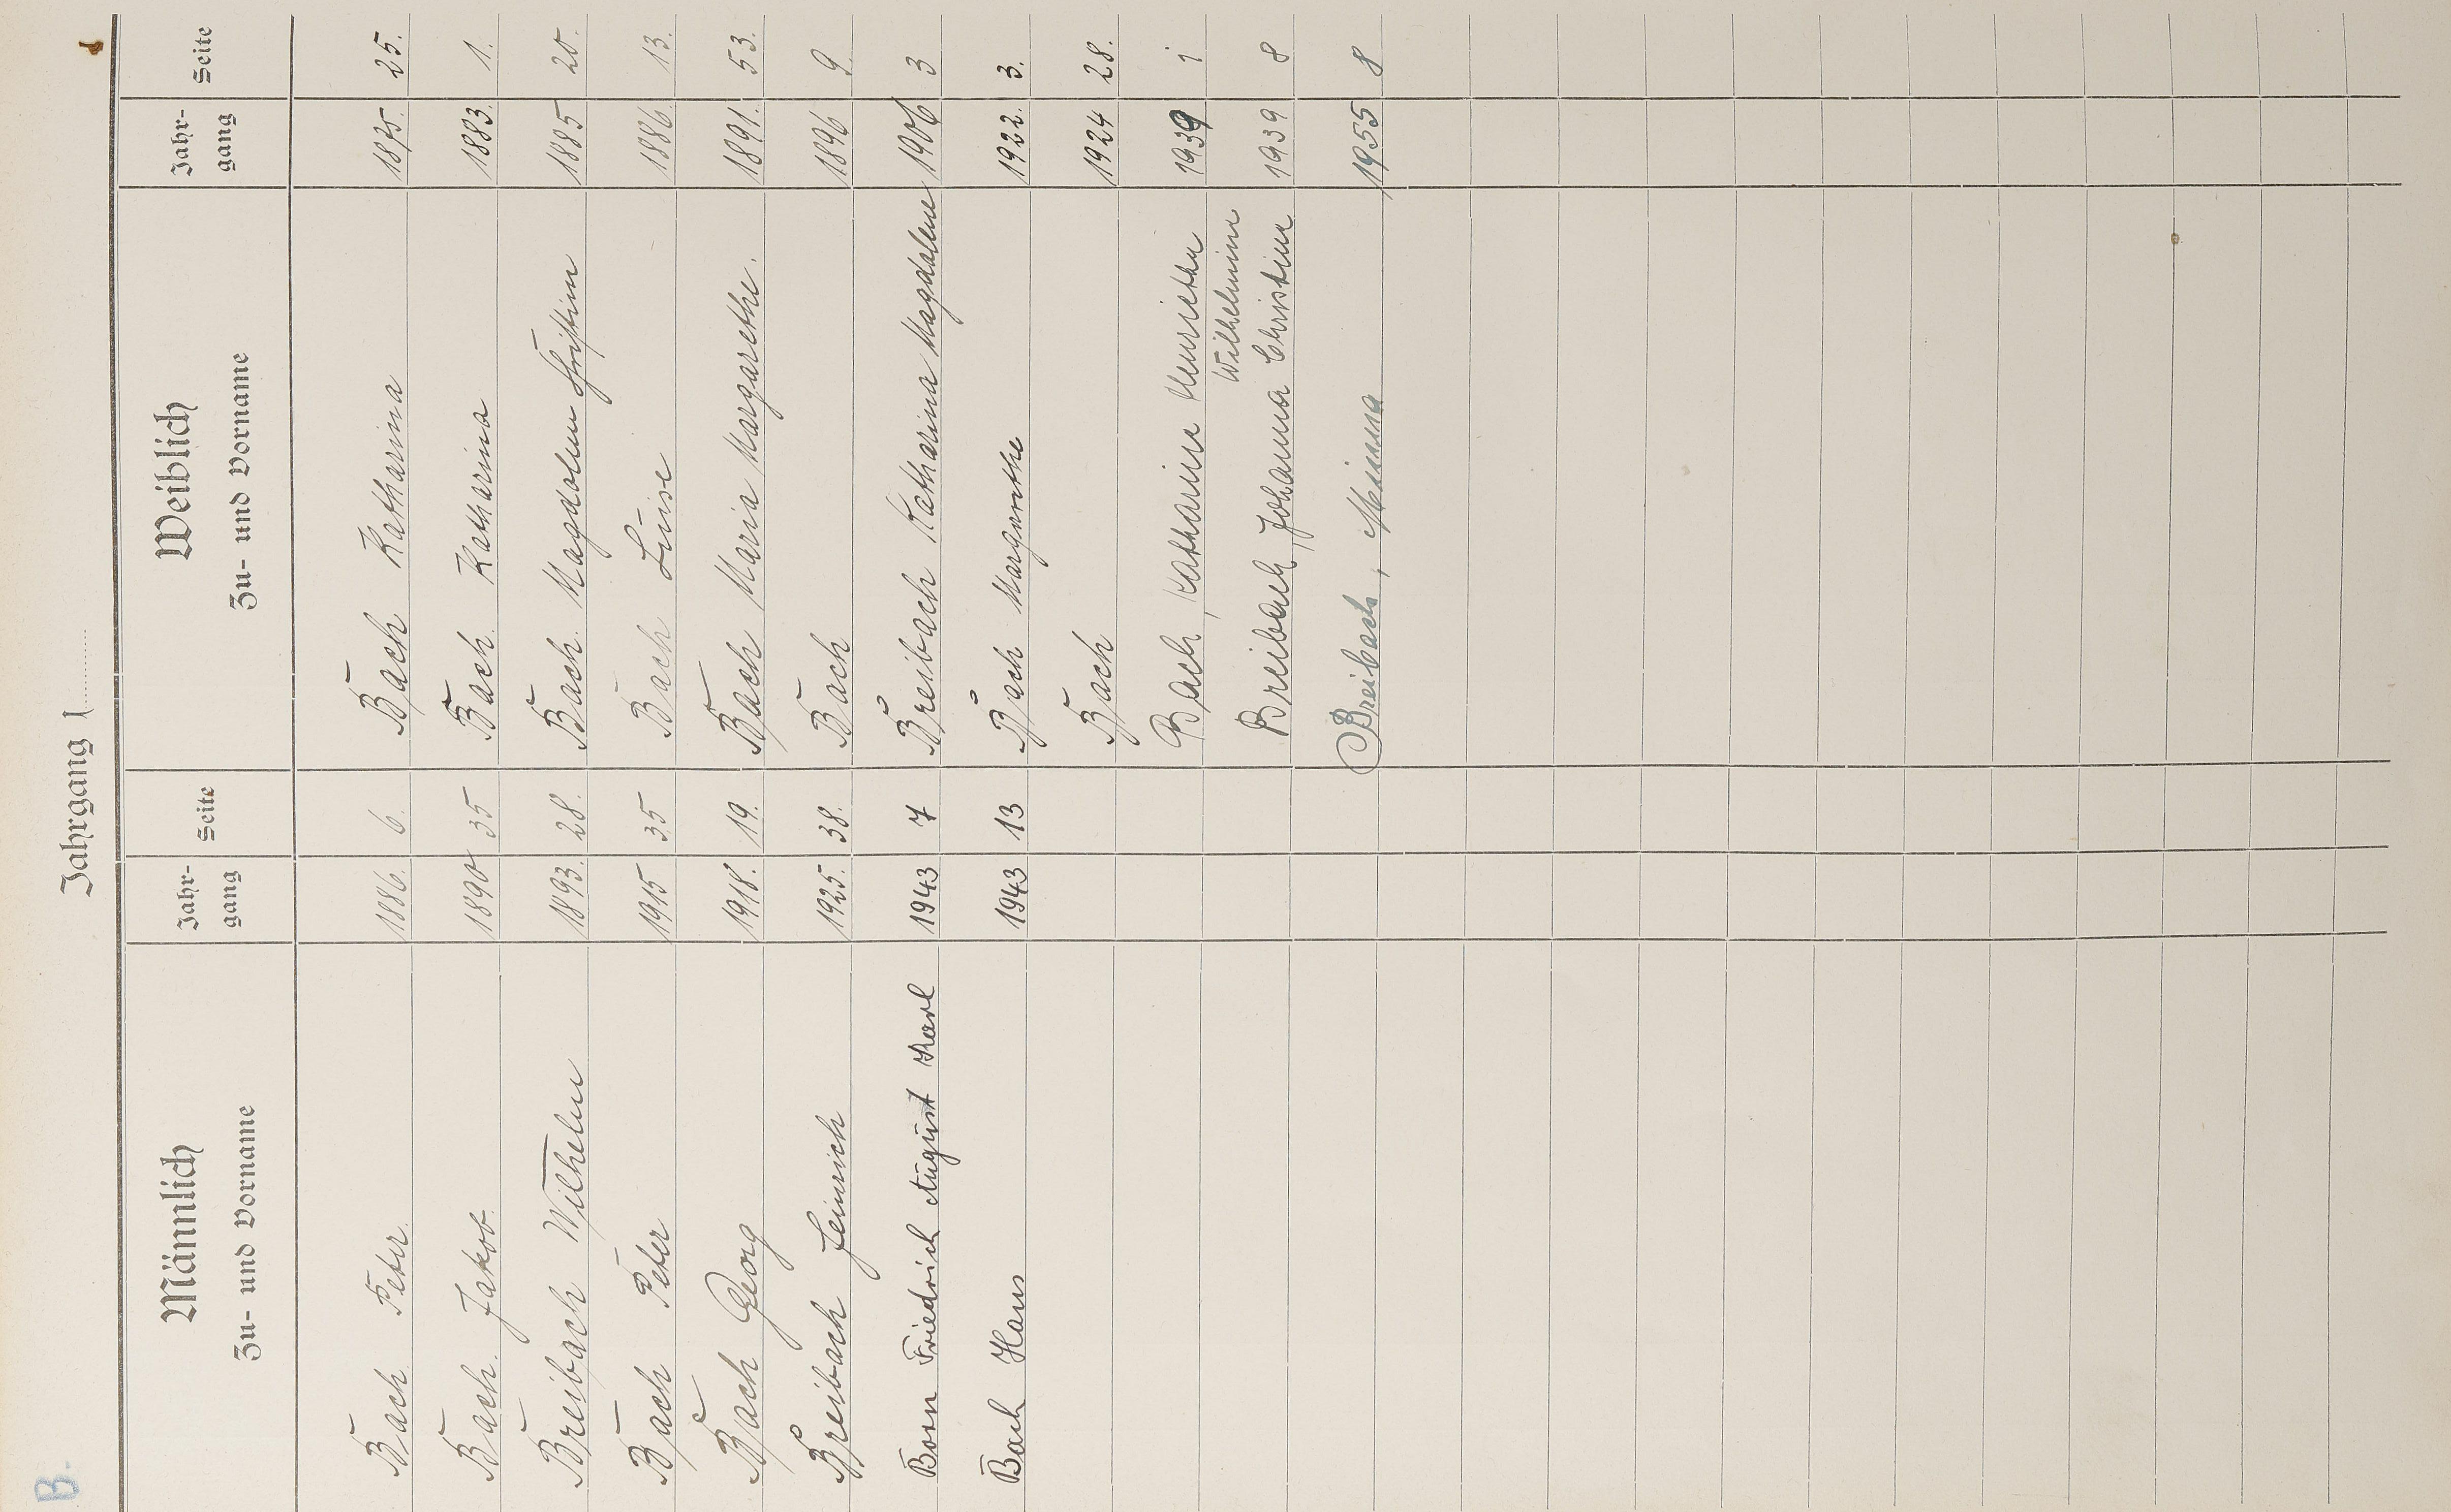 B.
Jahrgang 1
Männlich
Zu- und Vorname
Jahr-
gang
Seite
Weiblich
Zu- und Vorname
Jahr-
gang
Seite
Bach Peter. 1886. 6.
Bach Katharina 1875. 25.
Bach Jakob. 1890 35
Bach Katharina 1883. 1.
Breibach Wilhelm 1893. 28.
Bach Magdalena Christina 1885 20.
Bach Peter 1915 35
Bach Luise 1886. 13.
Bach Georg 1918. 19.
Bach Maria Margarethe. 1891. 53.
Breibach Heinrich 1925. 38.
Bach 1896 9.
Born Friedrich August Karl 1943 7
Breibach Katharina Magdalene 1906 3
Bach Hans 1943 13
Bach Margarethe 1922. 3.
Bach 1924 28.
Bach, Katharine Henriette 1939 1
Wilhelmine
Breibach, Johanna Christine 1939 8
Breibach, Minna 1955 8